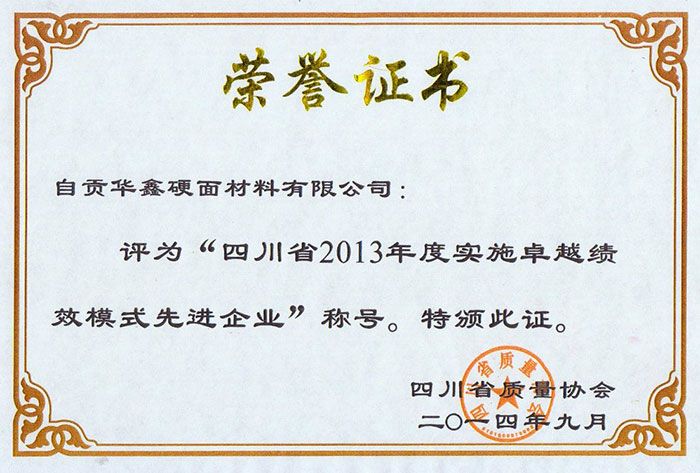 荣誉证书
自贡华鑫硬面材料有限公司：
评为“四川省2013年度实施卓越绩
效模式先进企业”称号。特颁此证。
四川省质量协会
二〇一四年九月
四川省质量协会